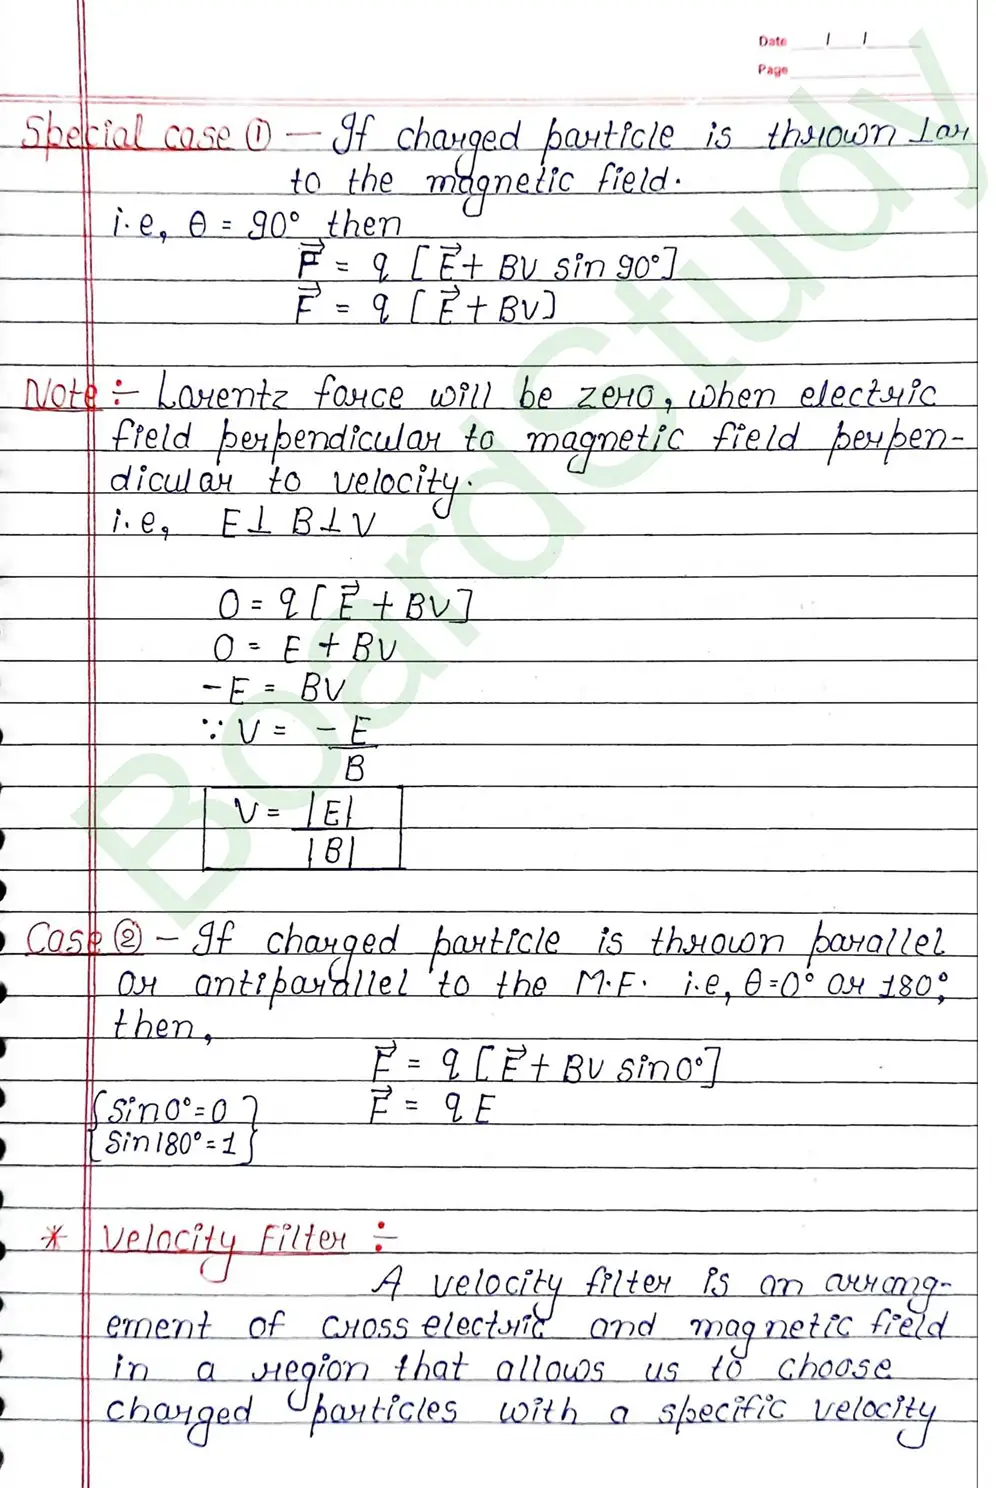 Date / /
Page
Special case ① — If charged particle is thrown ⊥ar
to the magnetic field.
i.e, θ = 90° then
F⃗ = q [E⃗ + BV sin 90°]
F⃗ = q [E⃗ + BV]
Note :- Lorentz force will be zero, when electric
field perpendicular to magnetic field perpen-
dicular to velocity.
i.e, E⊥ B⊥V
0 = q [E⃗ + BV]
0 = E + BV
-E = BV
∵ V = -E
B
V = |E|
|B|
Case ② - If charged particle is thrown parallel
or antiparallel to the M.F. i.e, θ=0° or 180°,
then,
F⃗ = q [E⃗ + BV sin 0°]
F⃗ = q E
{Sin 0° = 0}
{Sin 180° = 1}
* Velocity Filter :-
A velocity filter is an arrang-
ement of cross electric and magnetic field
in a region that allows us to choose
charged particles with a specific velocity
BoardStudy